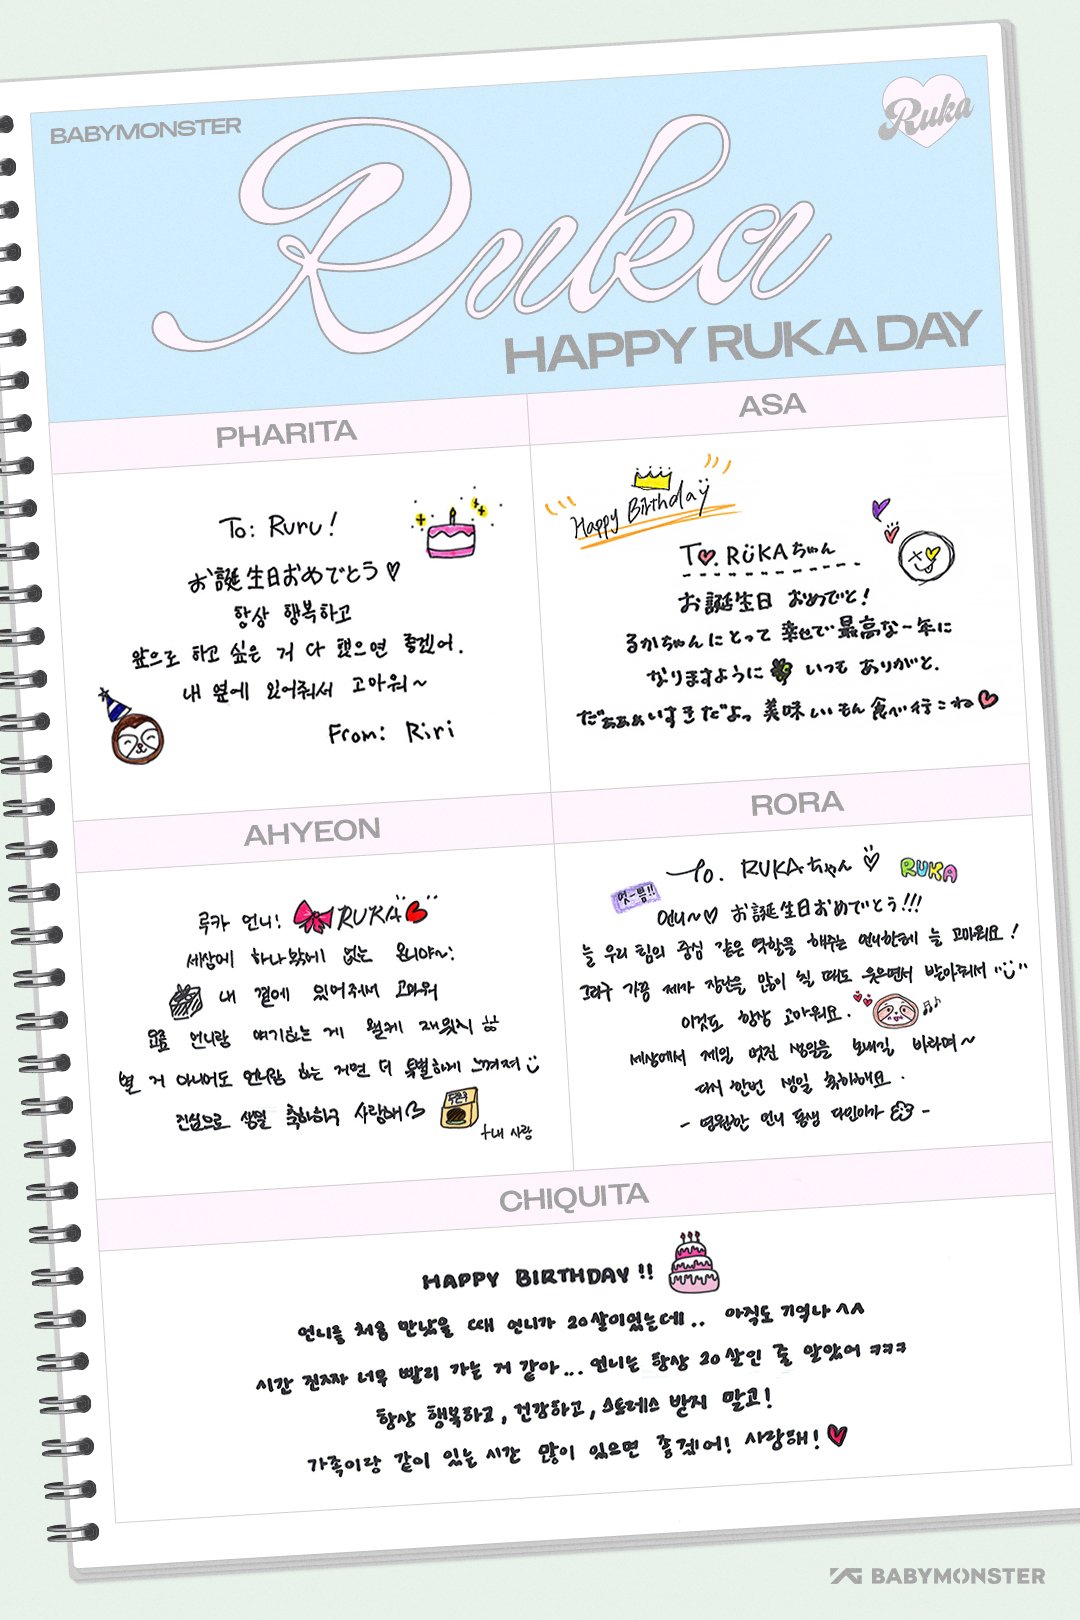 BABYMONSTER
Ruka
Ruka
HAPPY RUKA DAY
PHARITA
To: Ruru!
お誕生日おめでとう♡
항상 행복하고
앞으로 하고 싶은 거 다 했으면 좋겠어.
내 옆에 있어줘서 고마워~
From: Riri
ASA
Happy Birthday
To. RUKAちゃん
お誕生日 おめでと!
るかちゃんにとって 幸せで最高な一年に
なりますように いつも ありがと.
だぁぁぁいすきだよっ 美味しいもん食べ行こね
AHYEON
루카 언니! RUKA
세상에 하나밖에 없는 언니야~!
내 곁에 있어줘서 고마워
요즘 언니랑 얘기하는 게 왤케 재밌지
별 거 아니어도 언니랑 하는 거면 더 특별하게 느껴져
진심으로 생일 축하하구 사랑해♡
+내 사랑
RORA
To. RUKAちゃん ♡ RUKA
언니~♡ お誕生日おめでとう!!!
늘 우리 팀의 중심 같은 역할을 해주는 언니한테 늘 고마워요!
그리구 가끔 제가 장난을 많이 칠 때도 웃으면서 받아줘서
이것도 항상 고마워요.
세상에서 제일 멋진 생일을 보내길 바라며~
다시 한번 생일 축하해요.
- 영원한 언니 동생 다인이가 -
CHIQUITA
HAPPY BIRTHDAY!!
언니를 처음 만났을 때 언니가 20살이었는데.. 아직도 기억나^^
시간 진짜 너무 빨리 가는 거 같아... 언니는 항상 20살인 줄 알았어 ㅋㅋㅋ
항상 행복하고, 건강하고, 스트레스 받지 말고!
가족이랑 같이 있는 시간 많이 있으면 좋겠어! 사랑해!
YG BABYMONSTER